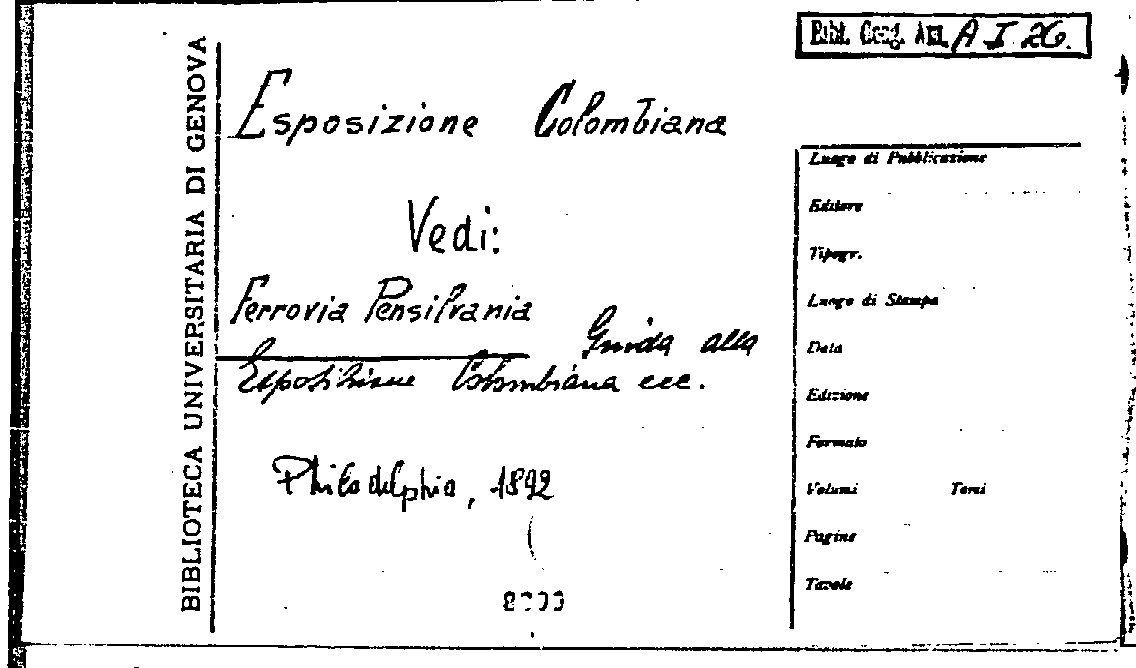 BIBLIOTECA UNIVERSITARIA DI GENOVA
A I 26.
Esposizione Colombiana
Vedi:
Ferrovia Pensilvania
Guida alla
Esposizione Colombiana ecc.
Philadelphia, 1892
Luogo di Pubblicazione
Editore
Tipogr.
Luogo di Stampa
Data
Edizione
Formato
Volumi Tomi
Pagine
Tavole